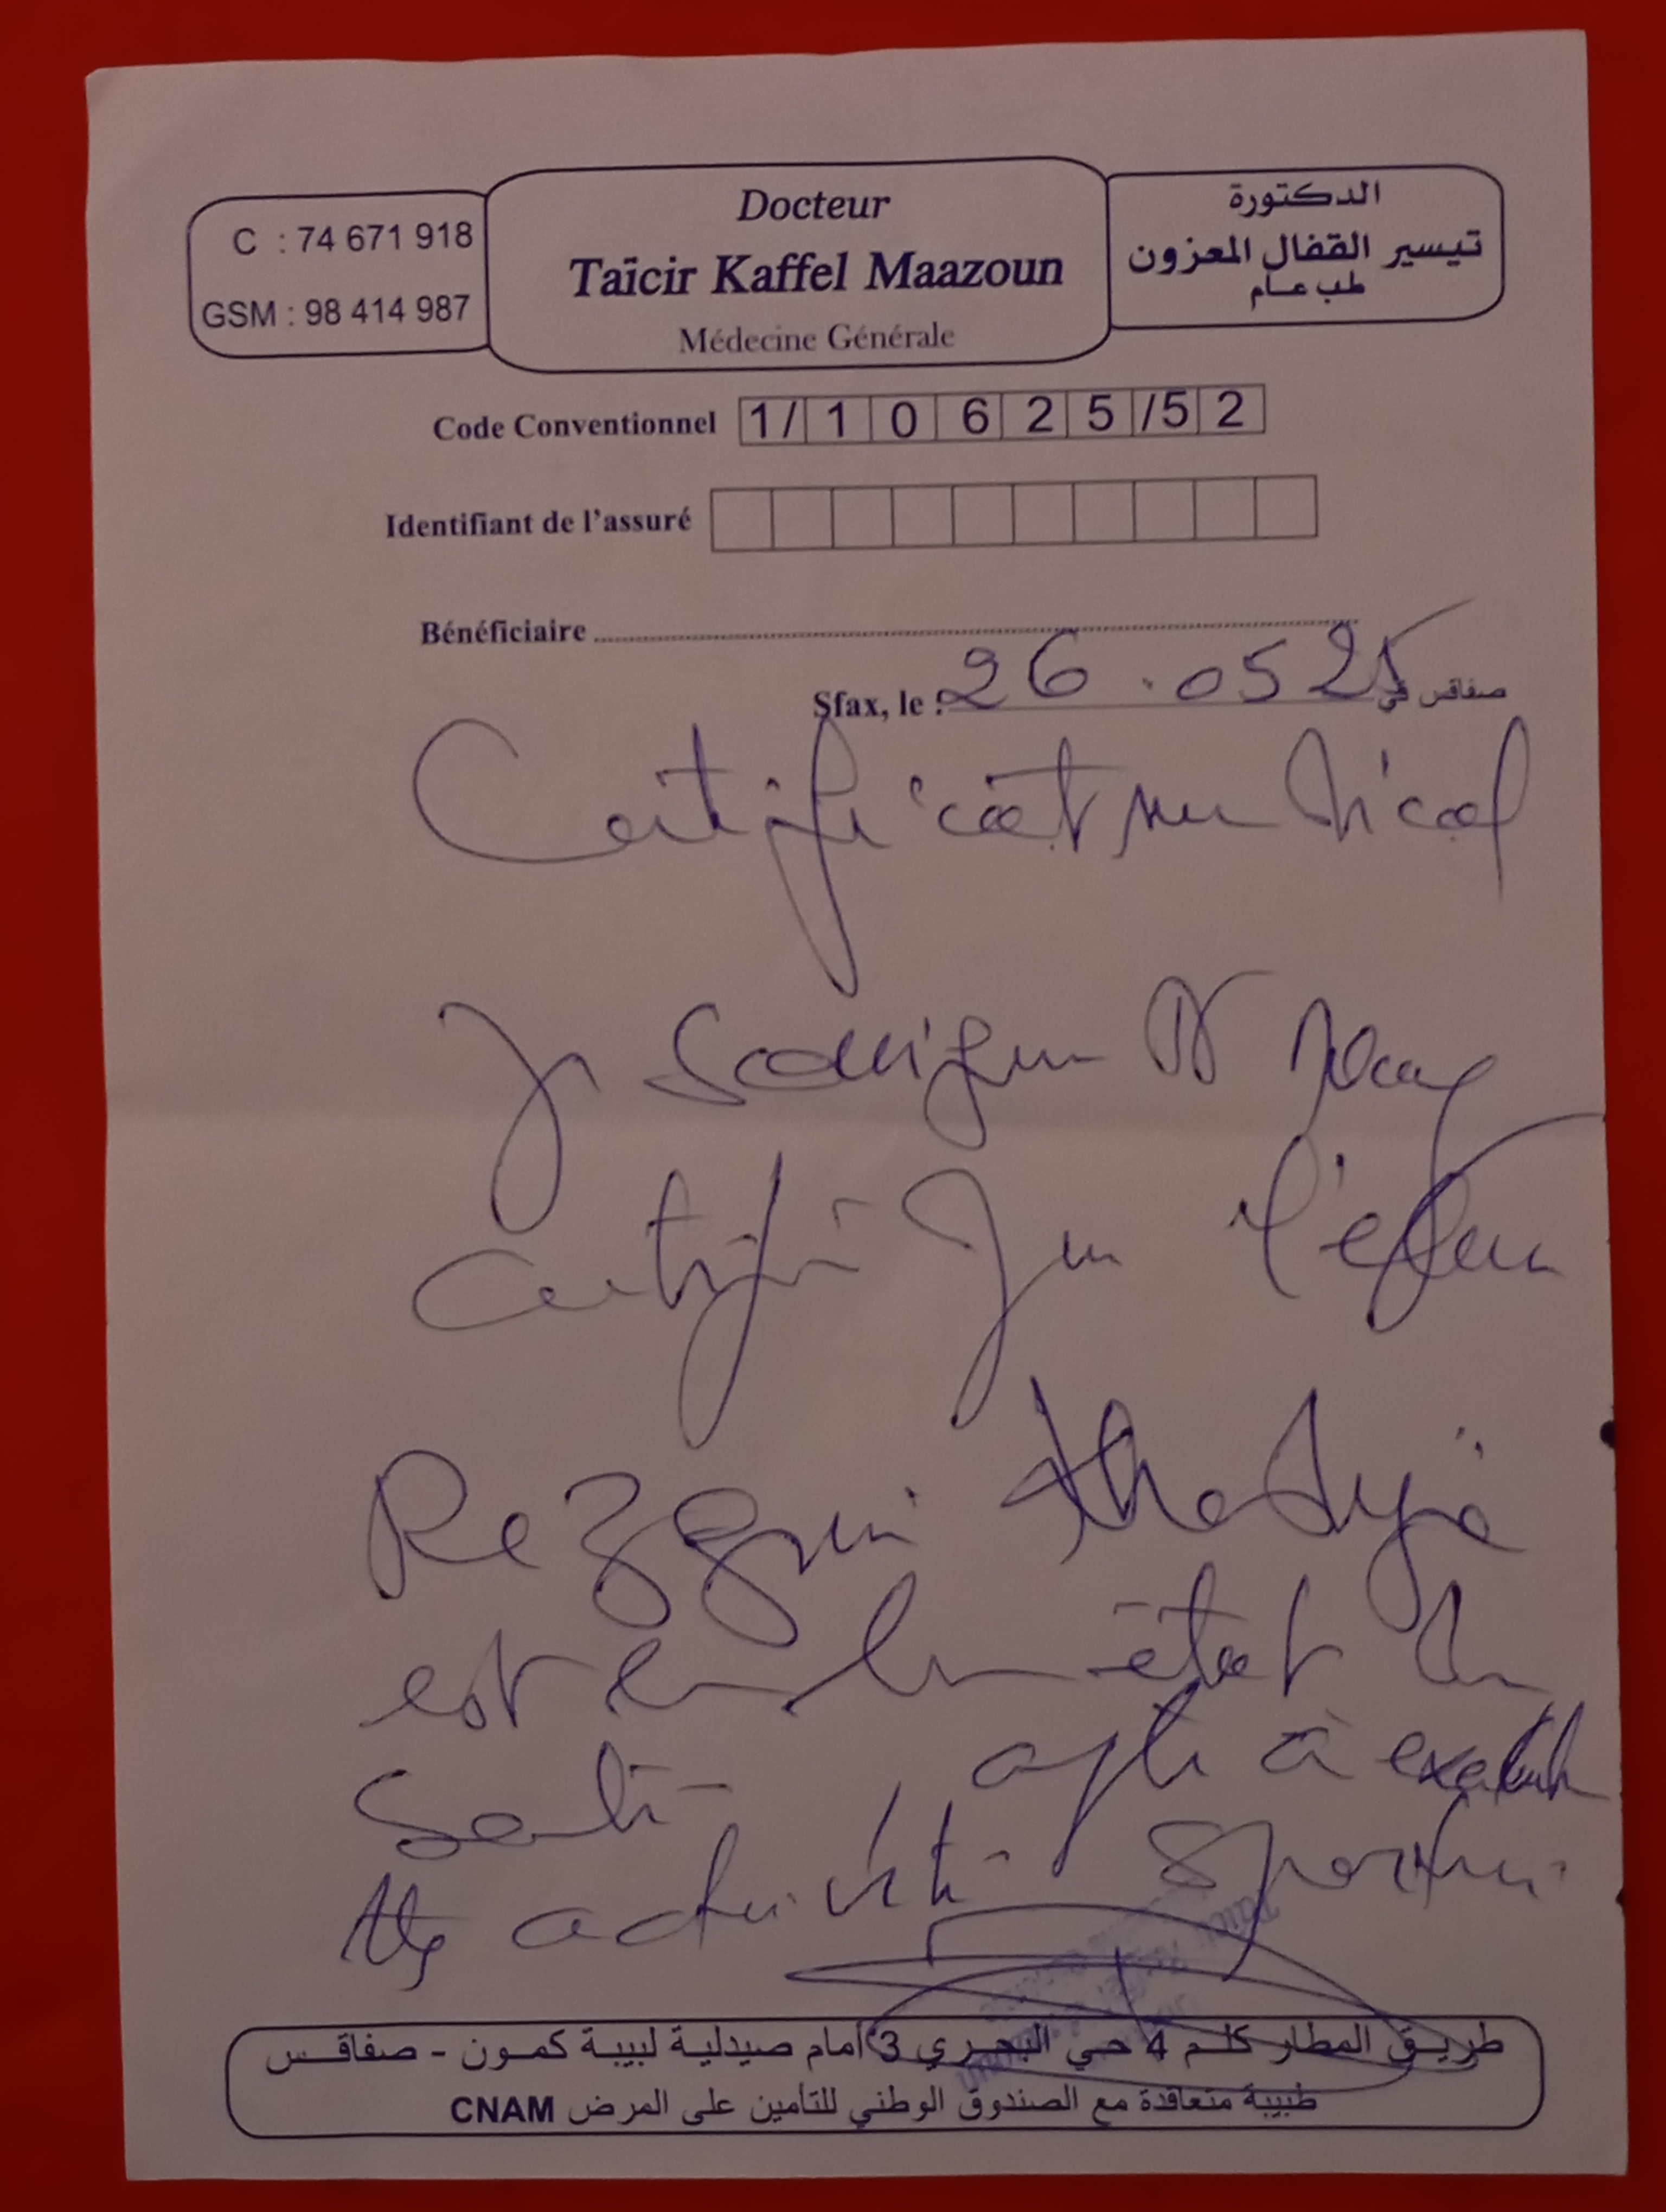 C : 74 671 918
GSM : 98 414 987
Docteur
Taïcir Kaffel Maazoun
Médecine Générale
الدكتورة
تيسير القفال المعزون
طب عام
Code Conventionnel 1/10625/52
Identifiant de l'assuré
Bénéficiaire
Sfax, le : 26.05 25 صفاقس في
Certificat médical
Je soussigné Dr
certifie que l'élève
Rezgui Khadija
est en bon état de
santé, apte à
activité sportive
طريق المطار كلم 4 حي البحري 3 أمام صيدلية لبيبة كمون - صفاقس
طبيبة متعاقدة مع الصندوق الوطني للتأمين على المرض CNAM